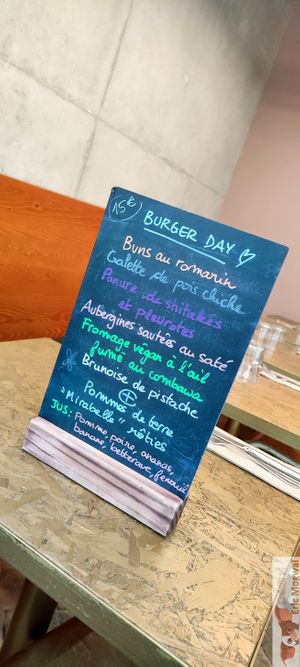 15€
BURGER DAY
Buns au romarin
Galette de pois chiche
Panure de shiitakés
et pleurotes
Aubergines sautées au saté
Fromage végan à l'ail
fumé au combawa
Brunoise de pistache
+
Pommes de terre
"Mirabelle" rôties
JUS: Pomme, poire, ananas,
banane, betterave, fenouil